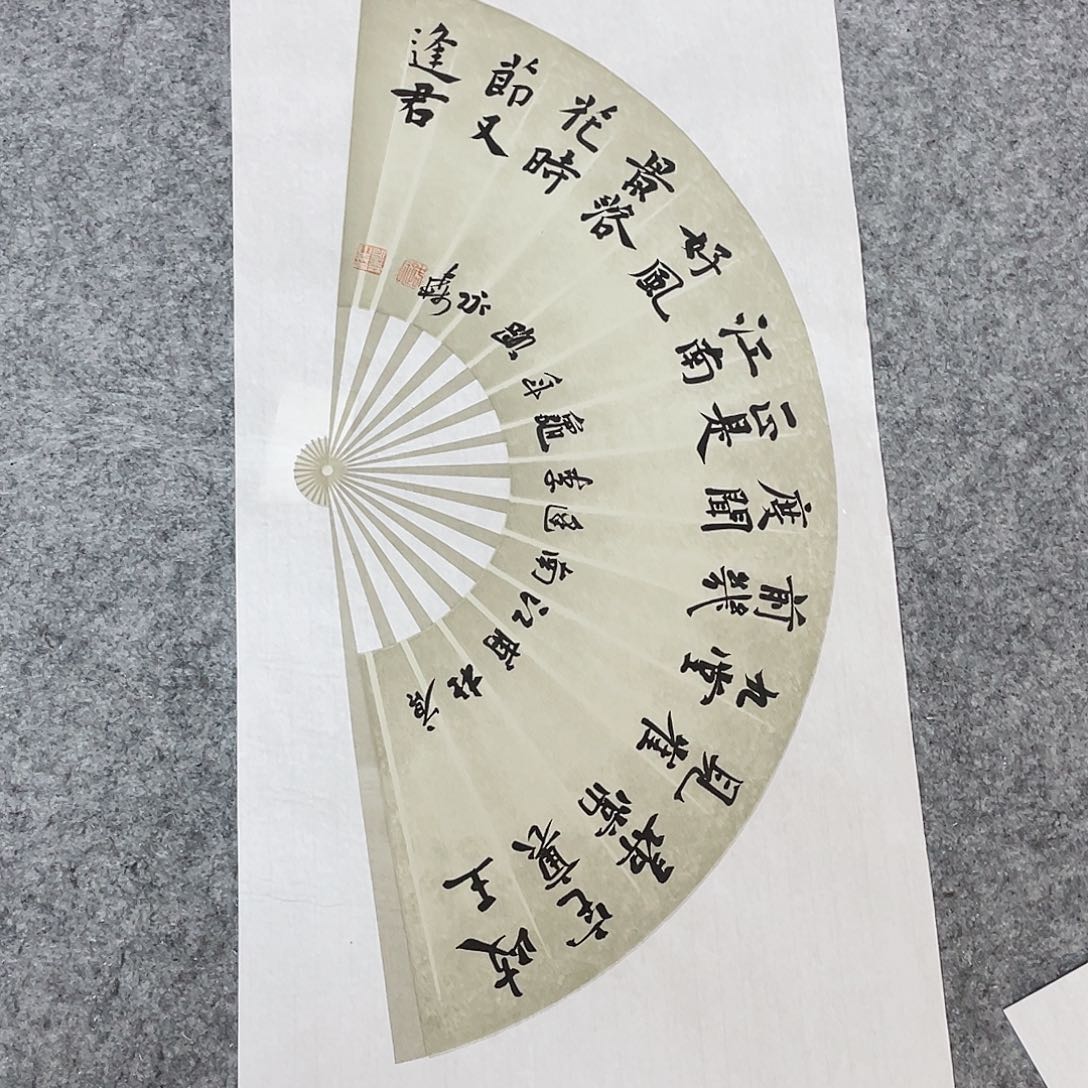 岐王
宅裏
尋常
見崔
九堂
前幾
度聞
正是
江南
好風
景落
花時
節又
逢君
杜甫江南逢李龜年